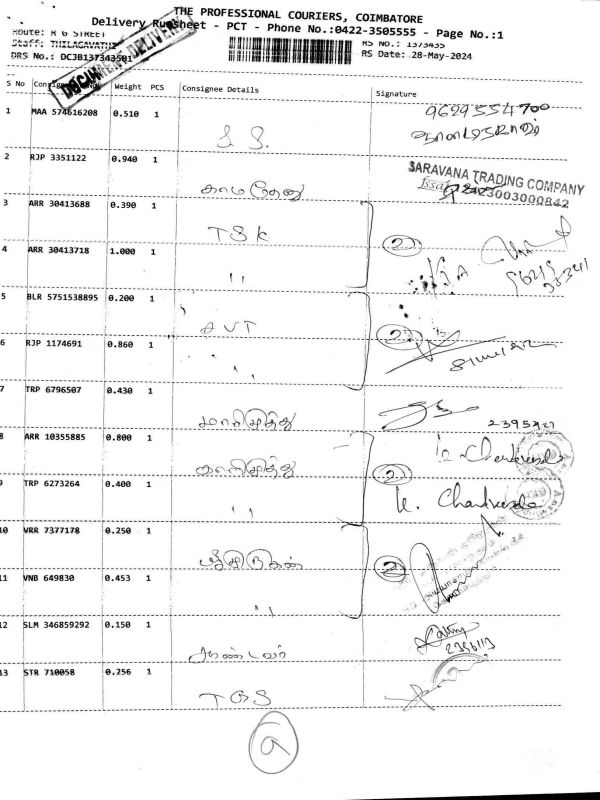 THE PROFESSIONAL COURIERS, COIMBATORE
Delivery Runsheet - PCT - Phone No.:0422-3505555 - Page No.:1
Route: R G STREET
Staff: THILAGAVATHI
RS No.: 1373435
DRS No.: DCJB137343501
RS Date: 28-May-2024
DOCUMENT DELIVERY
S No Weight PCS Consignee Details Signature
1 MAA 574616208 0.510 1
S.S.
9629554700
2 RJP 3351122 0.940 1
காமதேனு
SARAVANA TRADING COMPANY
fssai
3 ARR 30413688 0.390 1
TSK
2
4 ARR 30413718 1.000 1
"
5 BLR 5751538895 0.200 1
AVT
2
6 RJP 1174691 0.860 1
"
7 TRP 6796507 0.430 1
மாரிமுத்து
8 ARR 10355885 0.800 1
காளிமுத்து
2
9 TRP 6273264 0.400 1
"
K. Chandrasekar
10 VRR 7377178 0.250 1
2
11 VNB 649830 0.453 1
"
12 SLM 346859292 0.150 1
ஆண்டவர்
13 STR 710058 0.256 1
TGS
9